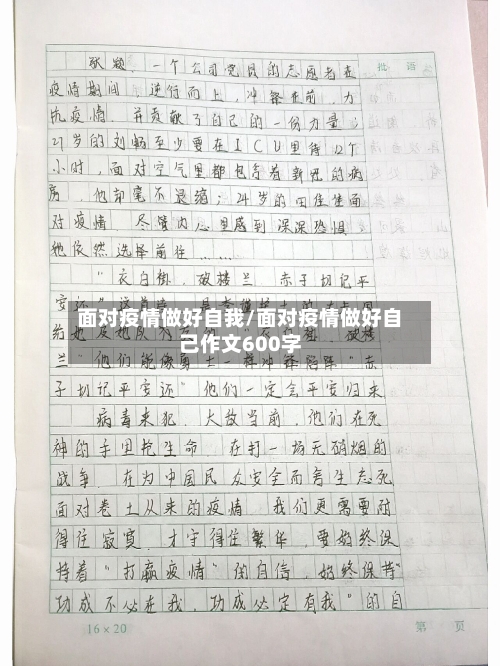 批 语
耿凝,一个公司党员的志愿者在
疫情期间,逆行而上,冲锋在前,为
抗疫情,并贡献了自己的一份力量;
27岁的刘畅至少要在ICU里待12个
小时,面对空气里都包含着新冠的病
房,他却毫不退缩;24岁的田佳隹面
对疫情,尽管内心里感到深深恐惧
她依然选择前往……
"衣白褂,破楼兰 赤子切记平
安还"
面对疫情做好自我/面对疫情做好自
己作文600字
兰"他们能像勇士一样冲锋陷阵"赤
子切记平安还"他们一定会平安归来
病毒来犯,大敌当前,他们在死
神的手里抢生命,在打一场无硝烟的
战争,在为中国民众安全而舍生忘死
面对卷土从来的疫情,我们更需要耐
得住寂寞,才守得住繁华,要始终保
持着"打赢疫情"的自信,始终保持"
功成不必在我,功成必定有我"的自
16×20
第 页